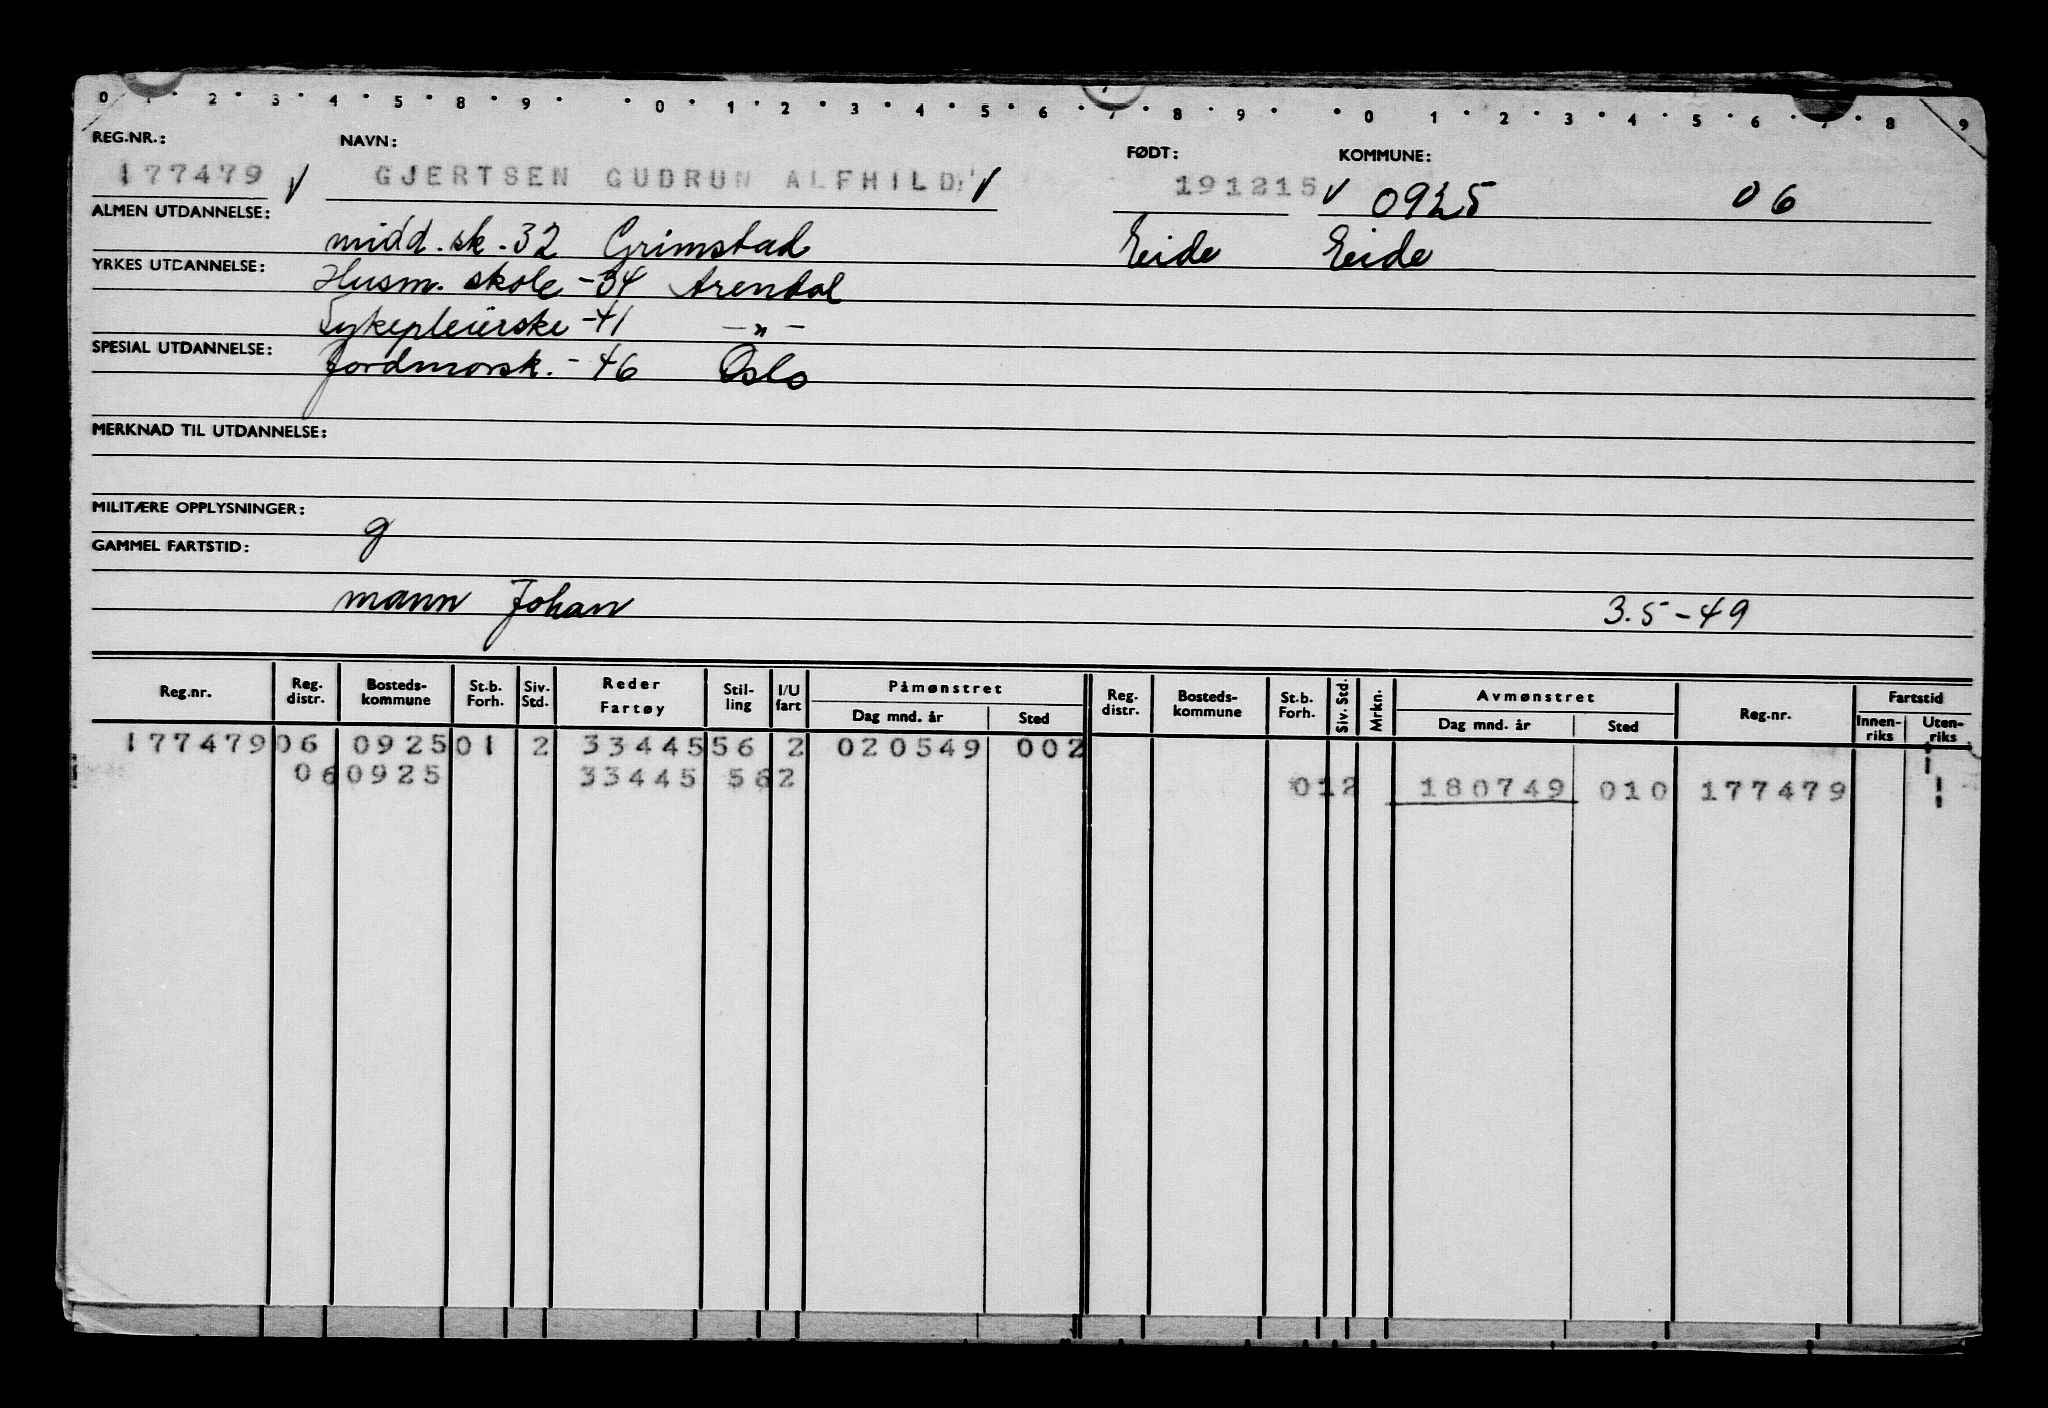 0 1 2 3 4 5 8 9 0 1 2 3 4 5 6 7 8 9 0 1 2 3 4 5 6 7 8 9
REG.NR.: NAVN: FØDT: KOMMUNE:
177479 v GJERTSEN GUDRUN ALFHILD v 191215 v 0925 06
ALMEN UTDANNELSE: midd. sk. 32 Grimstad Eide Eide
YRKES UTDANNELSE: Husm. skole -34 Arendal
Sykepleierske -41 -"-
SPESIAL UTDANNELSE: Jordmorsk. -46 Oslo
MERKNAD TIL UTDANNELSE:
MILITÆRE OPPLYSNINGER: g
GAMMEL FARTSTID:
mann Johan 3.5-49
Reg.nr. Reg. distr. Bosteds- kommune St.b. Forh. Siv. Std. Reder Fartøy Stil- ling I/U fart Påmønstret Dag mnd. år Sted Reg. distr. Bosteds- kommune St.b. Forh. Siv. Std. Mrkn. Avmønstret Dag mnd. år Sted Reg.nr. Fartstid Innen- riks Uten- riks
177479 06 0925 01 2 33445 56 2 020549 002
06 0925 33445 56 2 01 2 180749 010 177479 1